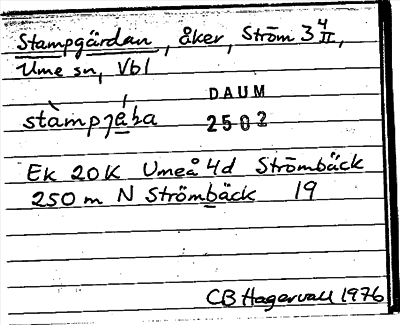 Stampgärdan, åker, Ström 3 4/II,
Ume sn, Vbl
DAUM
2502
Ek 20K Umeå 4d Strömbäck
250 m N Strömbäck 19
CB Hagervall 1976